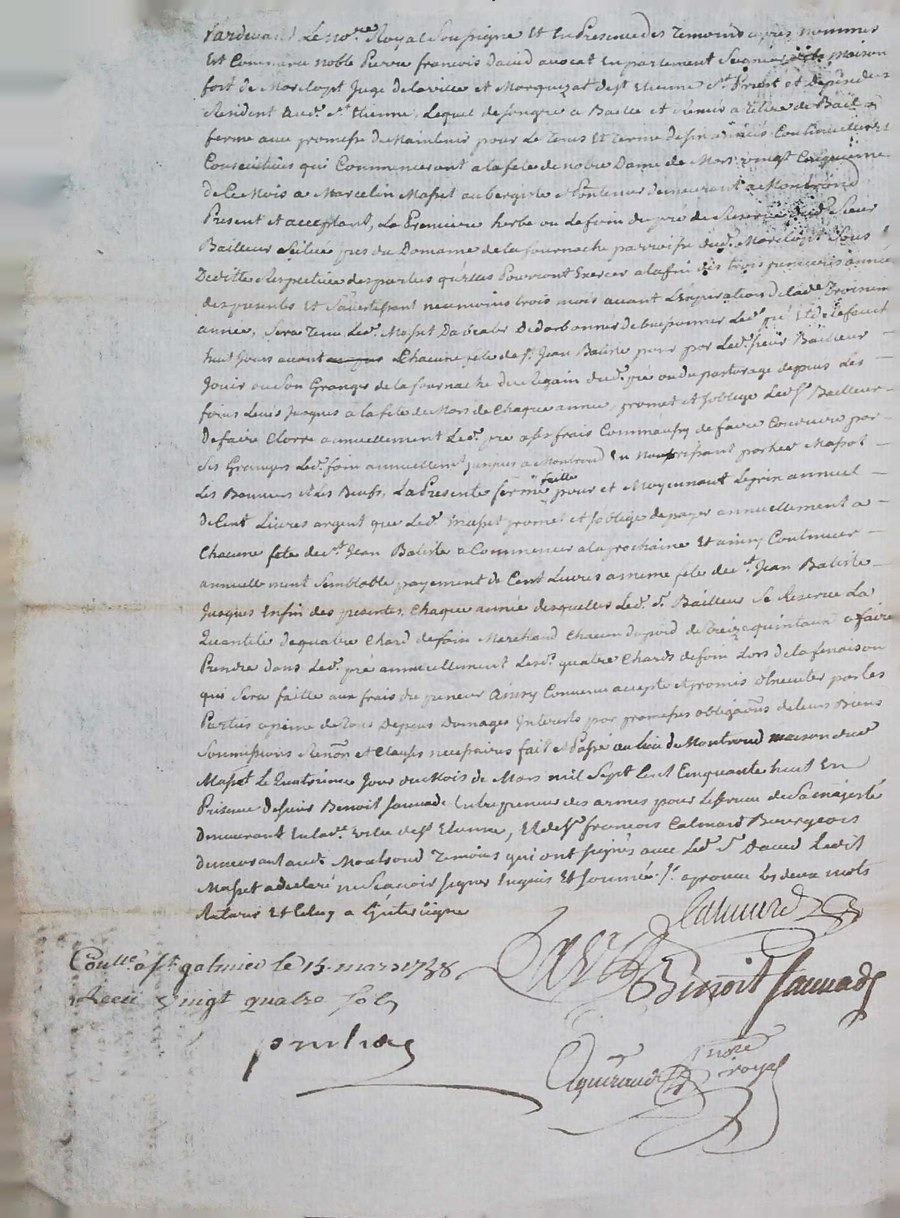 Pardevant Le no.re Royal Soussigné et En Presence des Temoins apres nommes
Est Comparu noble Pierre francois david avocat En parlement Seigneur de la maison
fort de Marclopt Juge de la ville et Marquizat de s.t Etienne s.t Priest et dependces
Residant aud. s.t Etienne, Lequel de son gre a Baillé et Remis a Titre de Bail a
ferme avec promesse de Maintenir pour Le Tems Et Terme de six années Continuelles Et
Consecutives qui Commenceront a la fete de notre Dame de Mars vingt Cinquieme
de Ce Mois a Marcelin Masset aubergiste demeurant a Montrond
Present et acceptant, La Premiere herbe ou Le foin du pré de Reserve dud. Sieur
Bailleur Situé pres du Domaine de la fournache parroisse dud. Marclopt Sous
Deditte Respective des parties qu'elles Pourront Exercer a la fin des trois premieres années
des presentes Et S'avertissant neanmoins trois mois avant L'expiration de lad. Troisieme
année, Sera Tenu Led. Masset de Led. pré Et de Le fauché
huit Jours avant Chacune fete de s.t Jean Batiste pour par Led. Sieur Bailleur
Jouir ou Son Granger de la fournache du Regain dud. pré ou du pasturage depuis Les
foins Levés Jusques a la fete de Mars de Chaque année, promet et s'oblige Led. s.r Bailleur
De faire Clorre annuellement Led. pré a ses frais Comme aussy de faire Conduire par
Ses Grangers Led. foin annuellement Jusques a Montrond En nourrissant par led. Masset
Les Bouviers et Les Bœufs, La Presente ferme faitte pour et Moyennant Le prix annuel
de Cent Livres argent que Led. Masset promet et s'oblige de payer annuellement a
Chacune fete de s.t Jean Batiste a Commencer a la prochaine Et ainsy Continuer
annuellement Semblable payement de Cent Livres a meme fete de s.t Jean Batiste
Jusques Enfin des presentes, Chaque année desquelles Led. s.r Bailleur Se Reserve La
Quantité de quatre Chard de foin Marchand Chacun du poid de Treize quintaux a faire
Prendre dans Led. pré annuellement Lesd. quatre Chards de foin Lors de la fenaison
qui Sera faitte aux frais du preneur Ainsy Convenu accepté et promis Executer par les
Parties a peine de Tous Depens Domages Interets par promesses obligaōns de leurs Biens
Soumissions Renōn et Clauses necessaires fait et Passé au lieu de Montrond maison dud.
Masset Le Quatrieme Jour du Mois de Mars mil Sept Cent Cinquante huit En
Presence de sieur Benoit Sauvade Entrepreneur des armes pour Le Service de Sa majesté
demeurant En lad. ville de s.t Etienne, Et de s.r francois Calmard Bourgeois
demeurant aud. Montrond Temoins qui ont signes avec Led. s.r David Ledit
Masset a declaré ne Scavoir signer Enquis Et Sommé
Calmard
David
Benoit Sauvade
Con.llé a s.t galmier le 15. mars 1758
Receu vingt quatre sols
no.re royal